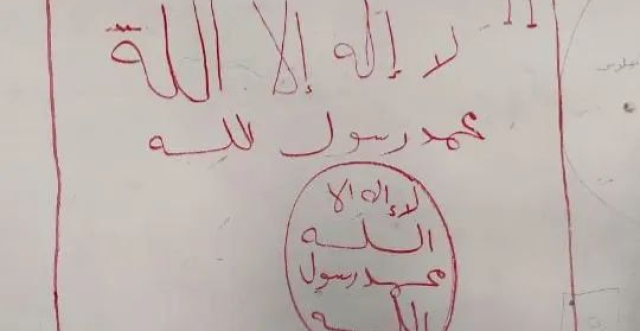 لا إله إلا الله
محمد رسول لله
لا إله الا
الله
محمد رسول
الله